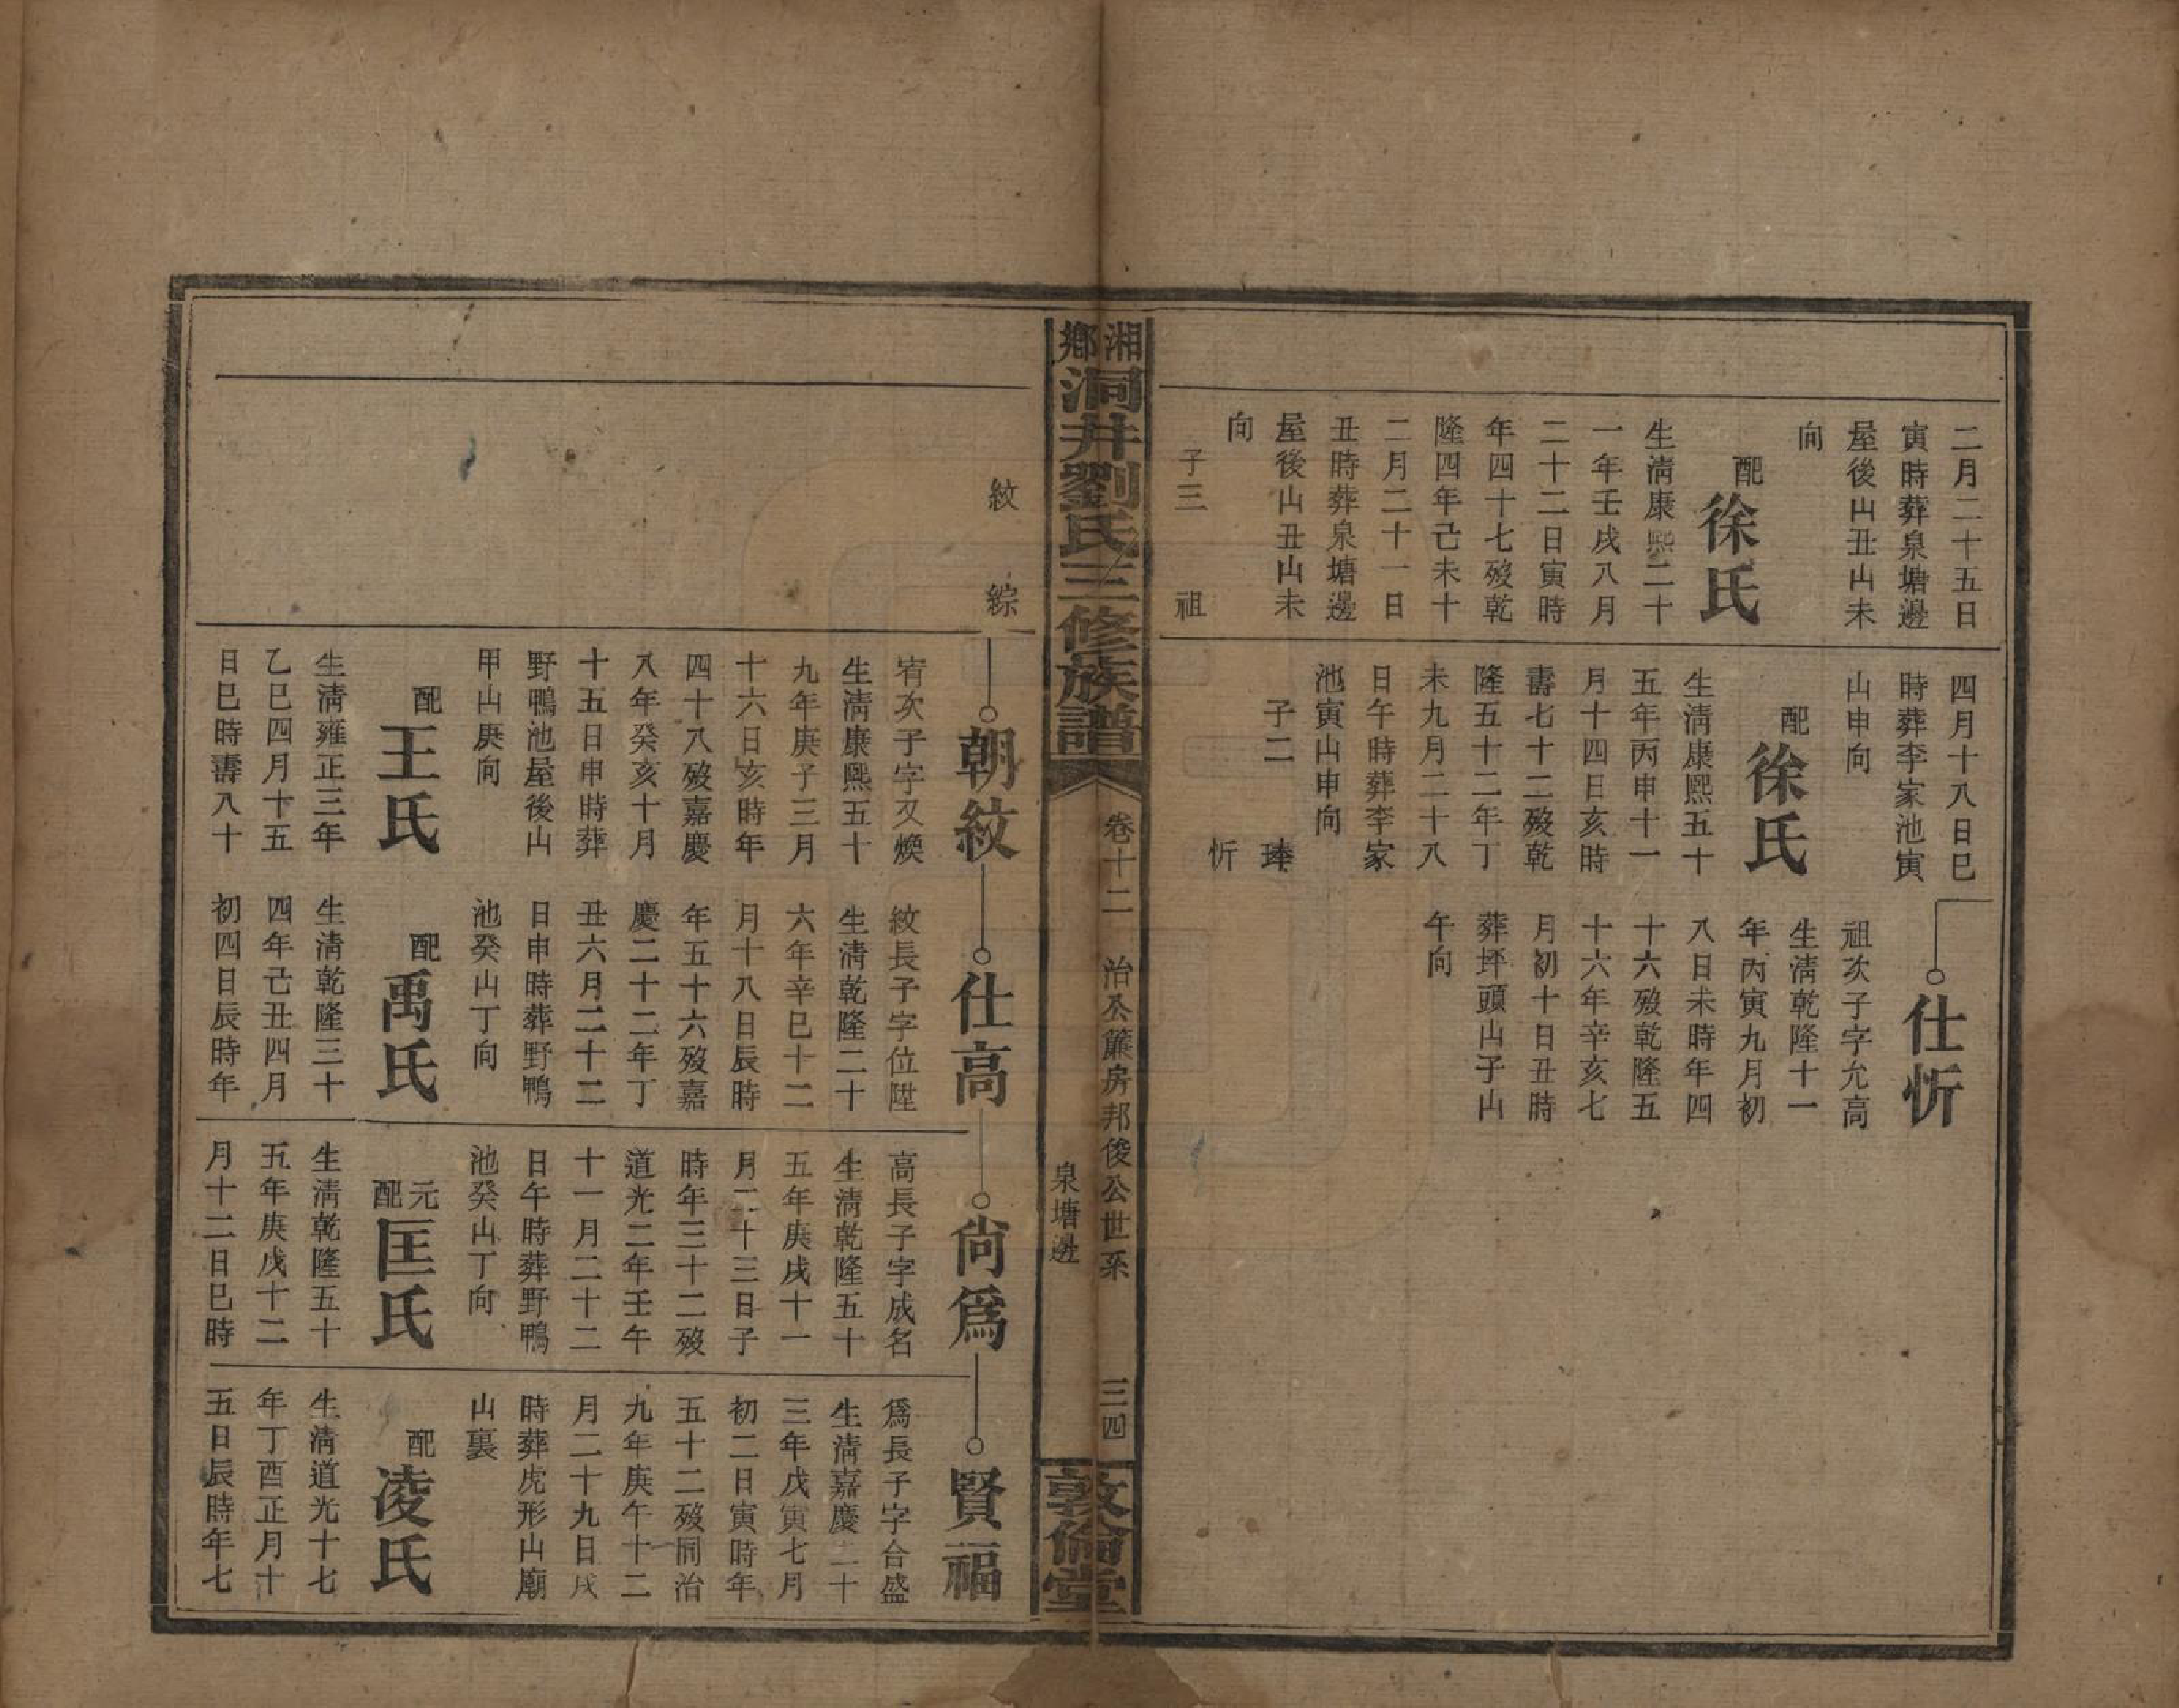 二月二十五日
寅時葬泉塘邊
屋後山丑山未
向
配
徐氏
生淸康熙二十
一年壬戌八月
二十二日寅時
年四十七歿乾
隆四年己未十
二月二十一日
丑時葬泉塘邊
屋後山丑山未
向
子三 祖
紋
綜
四月十八日巳
時葬李家池寅
山申向
配
徐氏
生淸康熙五十
五年丙申十一
月十四日亥時
壽七十二歿乾
隆五十二年丁
未九月二十八
日午時葬李家
池寅山申向
子二 琫
忻
仕忻
祖次子字允高
生淸乾隆十一
年丙寅九月初
八日未時年四
十六歿乾隆五
十六年辛亥七
月初十日丑時
葬坪頭山子山
午向
湘鄉洞井劉氏三修族譜
卷十二 治公簾房邦俊公世系
泉塘邊
三四
敦倫堂
朝紋
宥次子字又煥
生淸康熙五十
九年庚子三月
十六日亥時年
四十八歿嘉慶
八年癸亥十月
十五日申時葬
野鴨池屋後山
甲山庚向
配
王氏
生淸雍正三年
乙巳四月十五
日巳時壽八十
仕高
紋長子字位陞
生淸乾隆二十
六年辛巳十二
月十八日辰時
年五十六歿嘉
慶二十二年丁
丑六月二十二
日申時葬野鴨
池癸山丁向
配
禹氏
生淸乾隆三十
四年己丑四月
初四日辰時年
尙爲
高長子字成名
生淸乾隆五十
五年庚戌十一
月二十三日子
時年三十二歿
道光二年壬午
十一月二十二
日午時葬野鴨
池癸山丁向
元配
匡氏
生淸乾隆五十
五年庚戌十二
月十二日巳時
賢福
爲長子字合盛
生淸嘉慶二十
三年戊寅七月
初二日寅時年
五十二歿同治
九年庚午十二
月二十九日戌
時葬虎形山廟
山裏
配
凌氏
生淸道光十七
年丁酉正月十
五日辰時年七